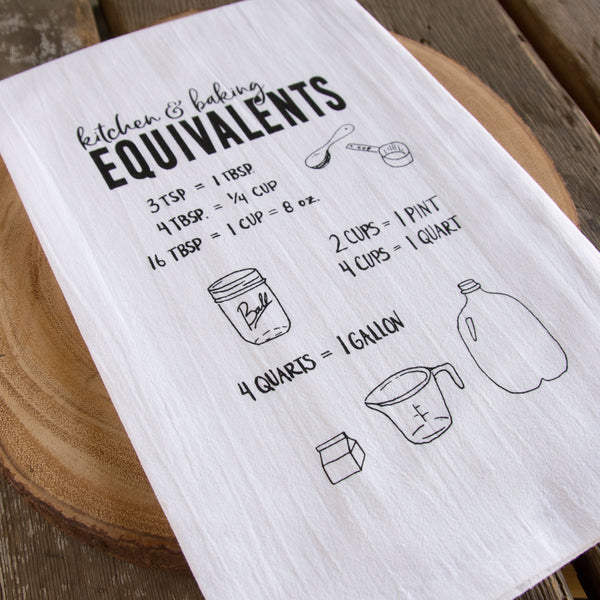 kitchen & baking
EQUIVALENTS
3 TSP = 1 TBSP.
4 TBSP. = 1/4 CUP
16 TBSP = 1 CUP = 8 oz.
2 CUPS = 1 PINT
4 CUPS = 1 QUART
Ball
4 QUARTS = 1 GALLON